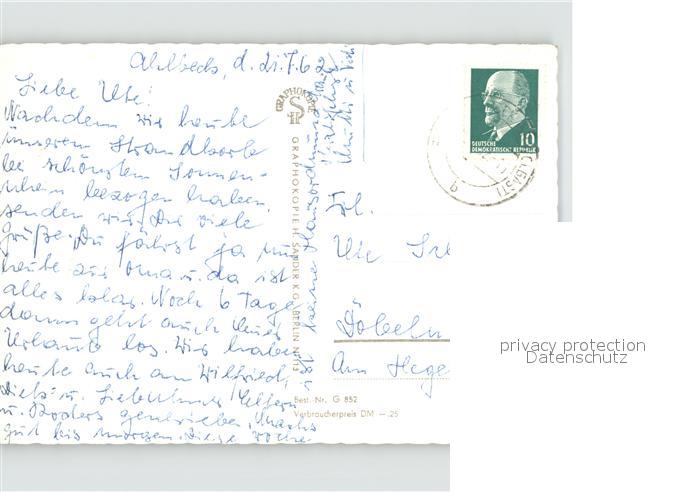 Ahlbeck, d. 21.7.62
Liebe Ute!
Nachdem wir heute
unseren Strandkorb
bei schönstem Sonnen-
schein bezogen haben,
senden wir Dir viele
Grüße. Du fährst ja nun
heute zu Oma u. da ist
alles klar. Noch 6 Tage
dann geht auch
Urlaub los. Wir haben
heute auch an Wilfried,
u.
u. geschrieben. Machs
gut bis morgen. Diese Woche
keine Hausordnung
Mutti u. Vati
GRAPHOKOPIE
GRAPHOKOPIE H. SANDER K.G. BERLIN N 113
DEUTSCHE
DEMOKRATISCHE REPUBLIK
10
Frl.
Ute
Döbeln
Am Hege
Best.-Nr. G 852
Verbraucherpreis DM —.25
privacy protection
Datenschutz